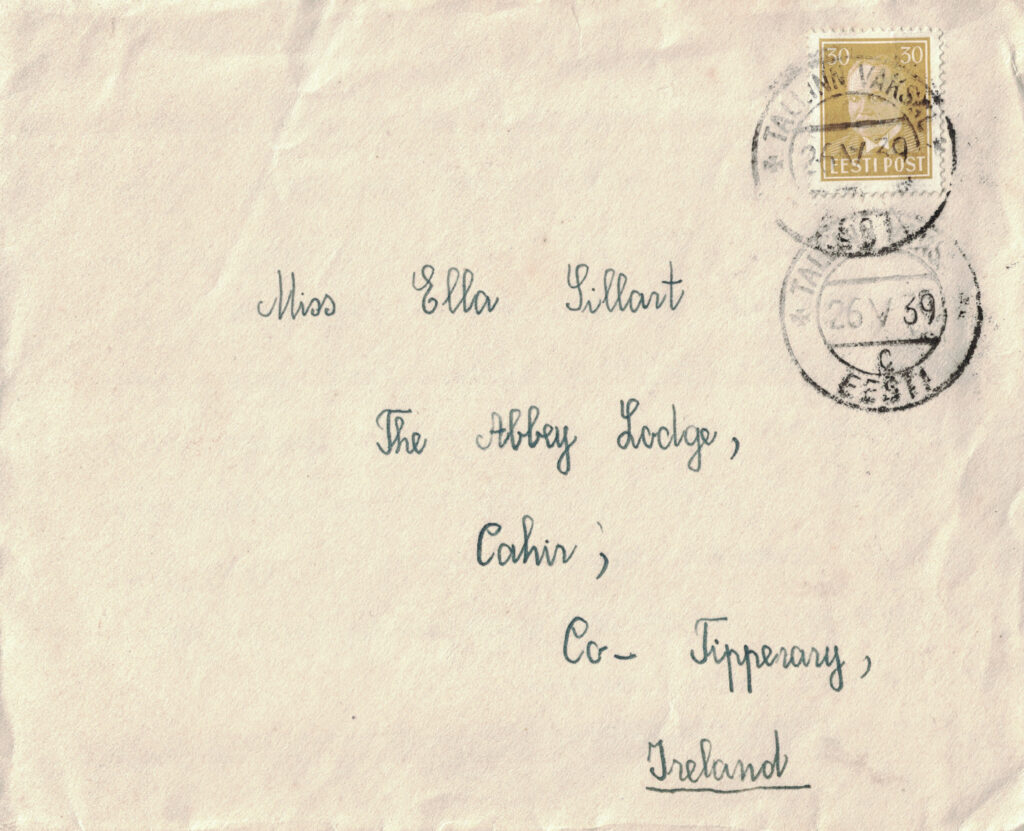 30 30
TALLINN VAKSAL
26 V 39
EESTI POST
EESTI
26 V 39
C
EESTI
Miss Ella Sillart
The Abbey Lodge,
Cahir,
Co- Tipperary,
Ireland